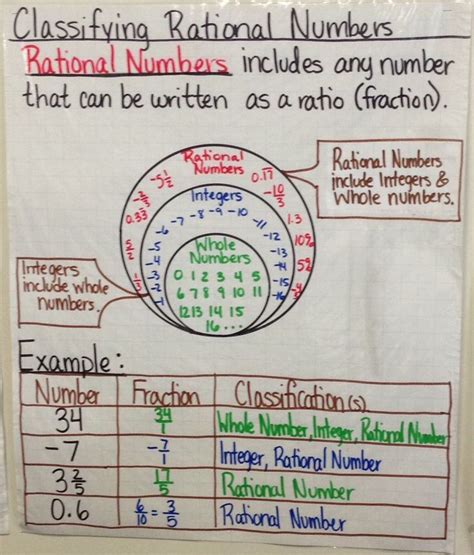 Classifying Rational Numbers
Rational Numbers includes any number
that can be written as a ratio (fraction).
Rational
Numbers
-5 1/2
0.17
-2/3
-10/3
0.33
1.3
5/2
10%
5%
1/3
Integers
-1 -2 -3 -4 -5 -6 -7 -8 -9 -10 -11 -12 -13 -14 -15 -16
Whole
Numbers
0 1 2 3 4 5
6 7 8 9 10 11
12 13 14 15
16 ...
Rational Numbers
include Integers &
Whole numbers.
Integers
include whole
numbers.
Example:
Number Fraction Classification(s)
34 34/1 Whole Number, Integer, Rational Number
-7 -7/1 Integer, Rational Number
3 2/5 17/5 Rational Number
0.6 6/10 = 3/5 Rational Number